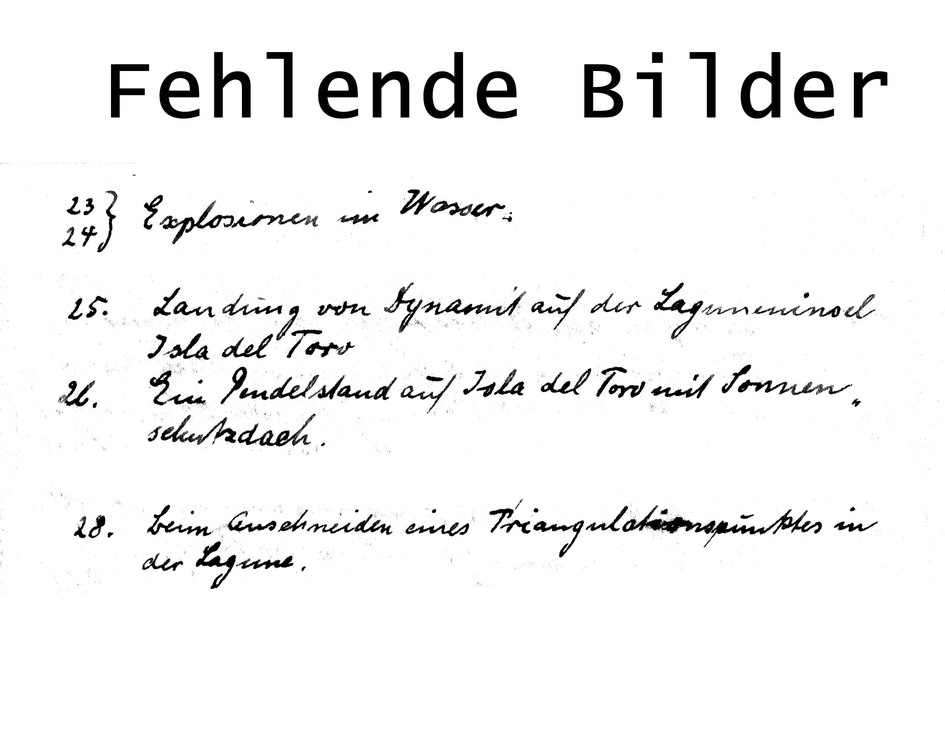 Fehlende Bilder
23 } Explosionen im Wasser.
24
25. Landung von Dynamit auf der Laguneninsel
Isla del Toro
26. Ein Pendelstand auf Isla del Toro mit Sonnen„
schutzdach.
28. beim Anschneiden eines Triangulationspunktes in
der Lagune.